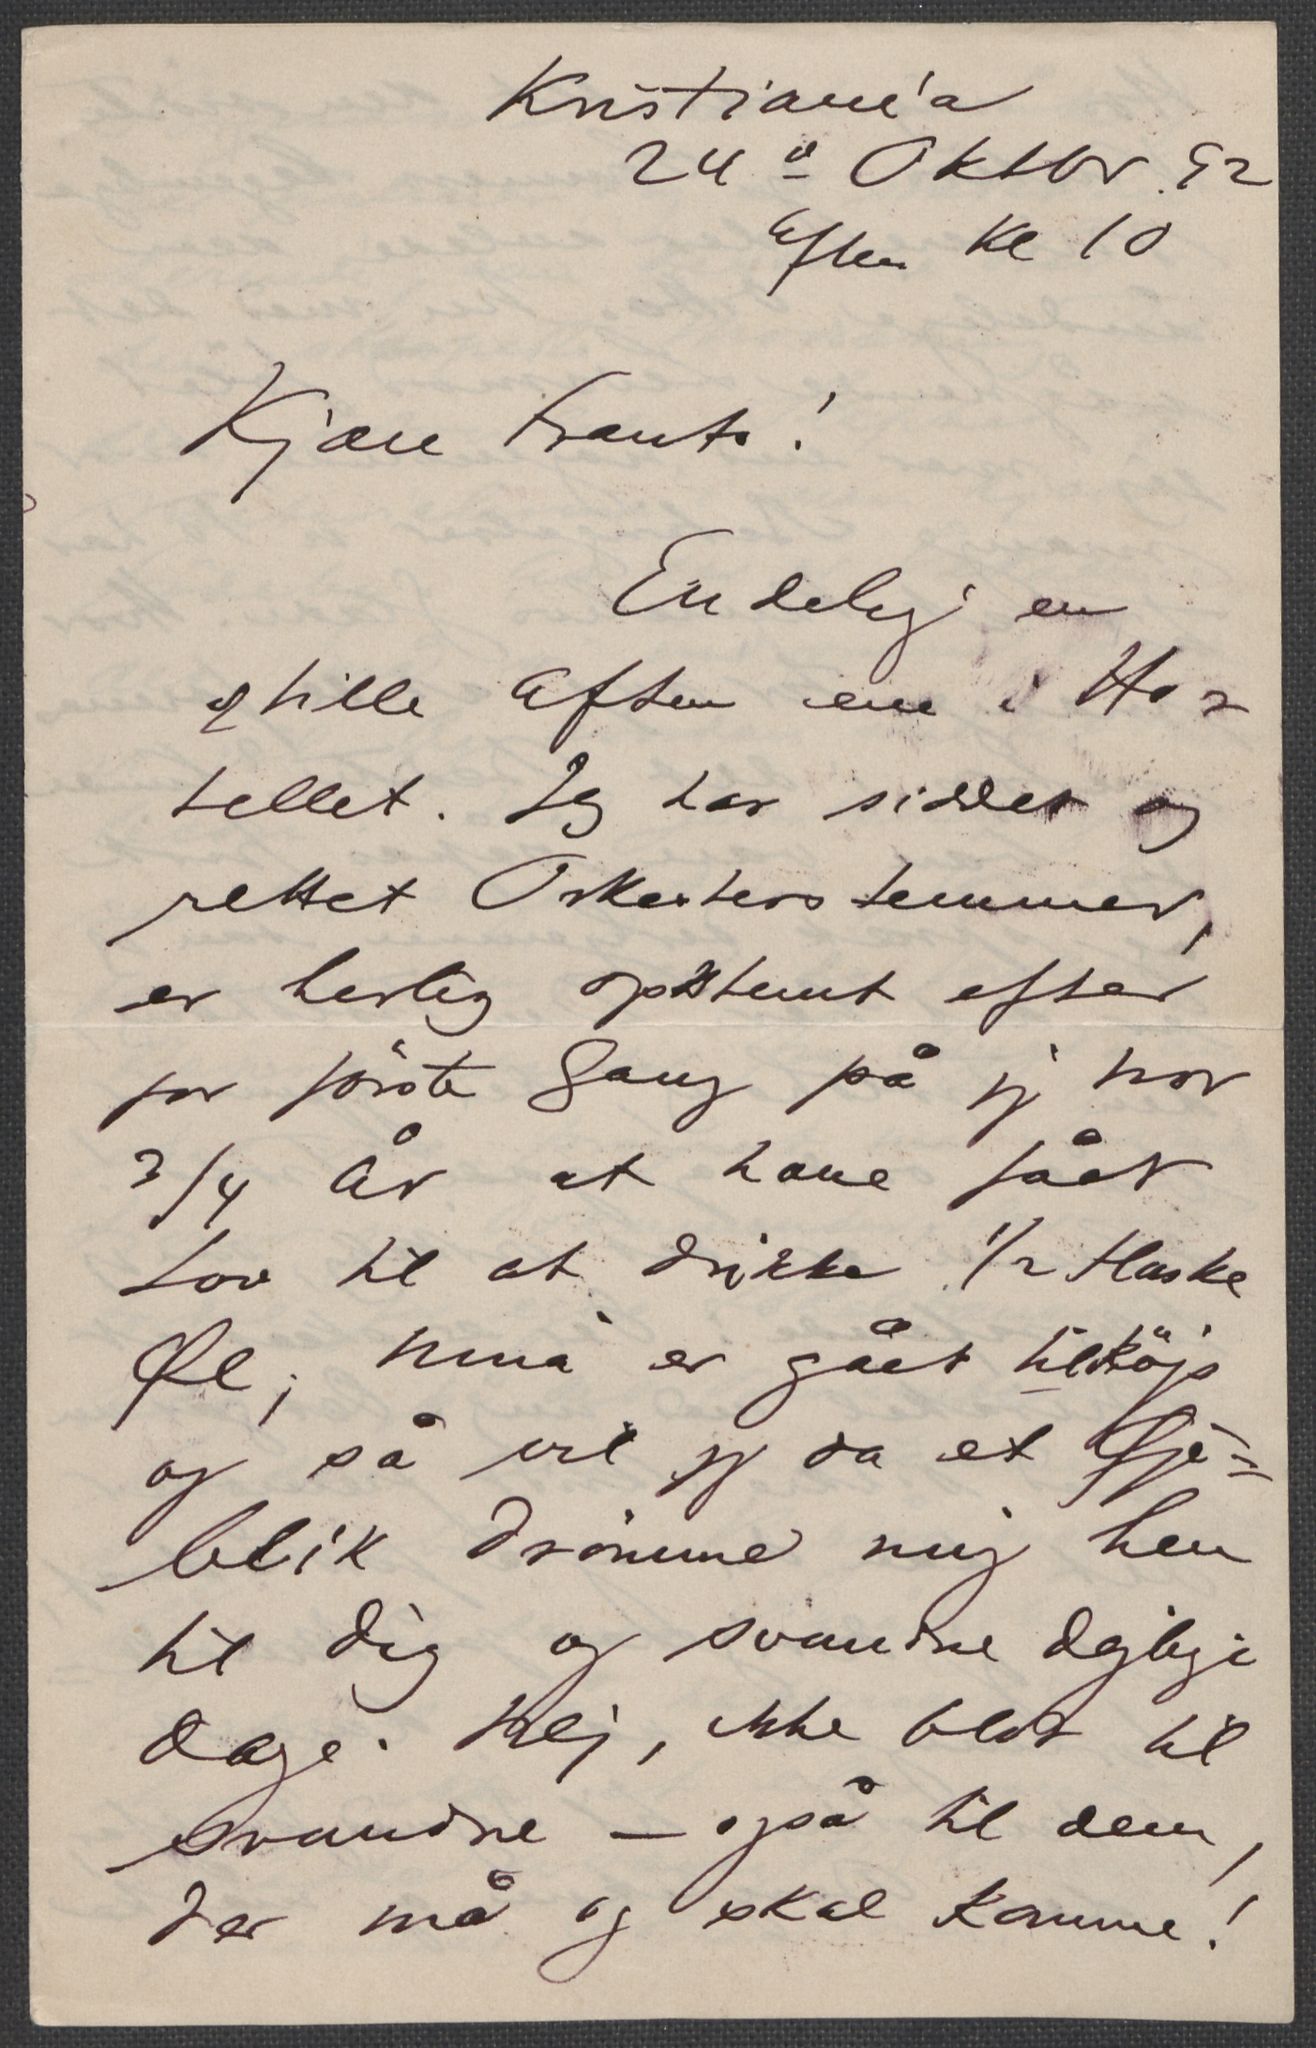 Kristiania
24d Oktbr. 92
Aften Kl 10
Kjære Frants!
Endelig en
stille Aften her i Ho=
tellet. Jeg har siddet og
rettet Orkesterstemmer,
er herlig opstemt efter
for første Gang på jeg tror
3/4 År at have fået
Lov til at drikke 1/2 Flaske
Øl; Nina er gået tilkøjs
og så vil jeg da et Øje=
blik drømme mig hen
til dig og svundne dejlige
Dage. Nej, ikke blot til
svundne – også til dem,
der må og skal komme!